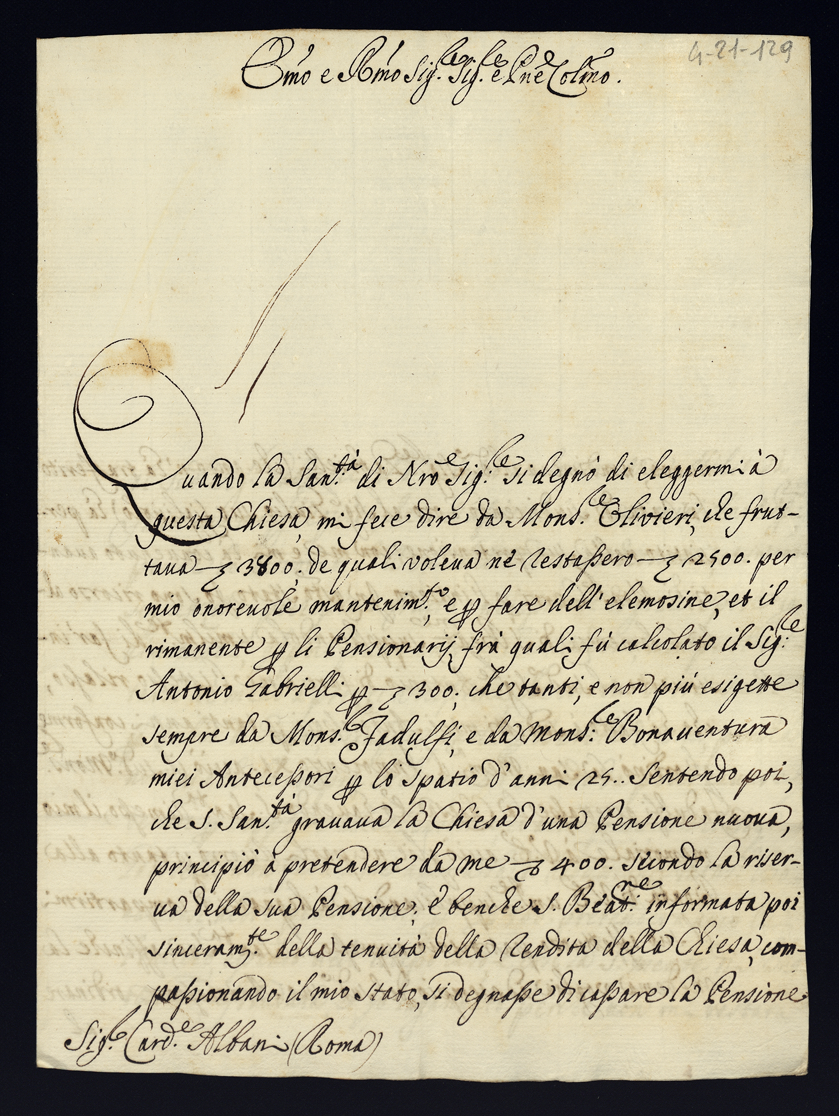 4-21-129
Em̃o e Rm̃o Sig.re Sig.re e Pñe Colm̃o.
Quando la San.tà di Nrõ Sig.re si degnò di eleggermi à
questa Chiesa, mi fece dire da Mons.re Olivieri, che frut-
tava 3800. de quali voleva nè restassero 2500. per
mio onorevole mantenim.to, e ꝑ fare dell'elemosine, et il
rimanente ꝑ li Pensionarij, frà quali fù calcolato il Sig.re
Antonio Gabrielli ꝑ 300; che tanti, e non più esigette
sempre da Mons.re Fadulfi, e da Mons.re Bonaventura
miei Antecessori ꝑ lo spatio d'anni 25.. Sentendo poi,
che S. San.tà gravava la Chiesa d'una Pensione nuova,
principiò a pretendere da me 400. secondo la riser-
va della sua Pensione; e benche S. Beat.ne informata poi
sinceram.te della tenuità della rendita della Chiesa, com-
passionando il mio stato, si degnasse di cassare la Pensione
Sig.re Card.e Albani (Roma)